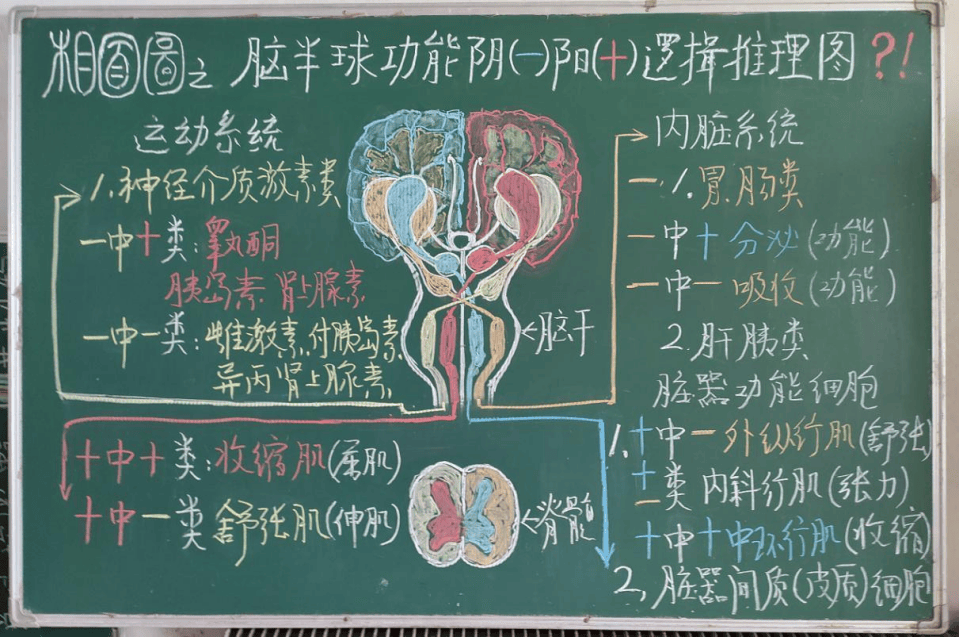 相面圖之 脑半球功能阴(一)阳(+)逻揖推理图?!
运动系统
1.神经介质激素类
一中十类:睾丸酮
胰岛素 肾上腺素
一中一类:雌激素.付胰岛素
异丙肾上腺素
十中十类:收缩肌(屈肌)
十中一类 舒张肌(伸肌)
←脑干
←脊髓
内脏系统
一 1.胃.肠类
一中十分泌(功能)
一中一吸收(功能)
2.肝胰类
脏器功能细胞
1.十中一外纵行肌(舒张)
十一类 内斜行肌(张力)
十中十中环行肌(收缩)
2、脏器间质(皮质)细胞